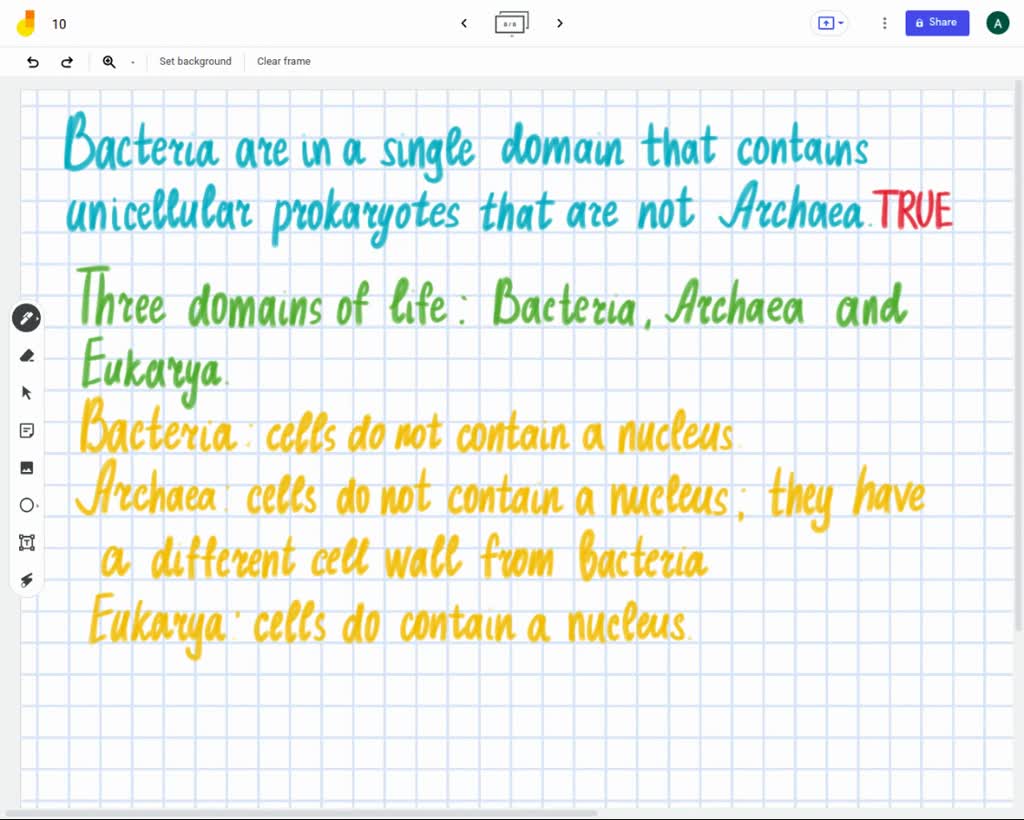 10
8/8
Share
A
Set background
Clear frame
Bacteria are in a single domain that contains
unicellular prokaryotes that are not Archaea. TRUE
Three domains of life: Bacteria, Archaea and
Eukarya.
Bacteria: cells do not contain a nucleus.
Archaea: cells do not contain a nucleus; they have
a different cell wall from Bacteria
Eukarya: cells do contain a nucleus.